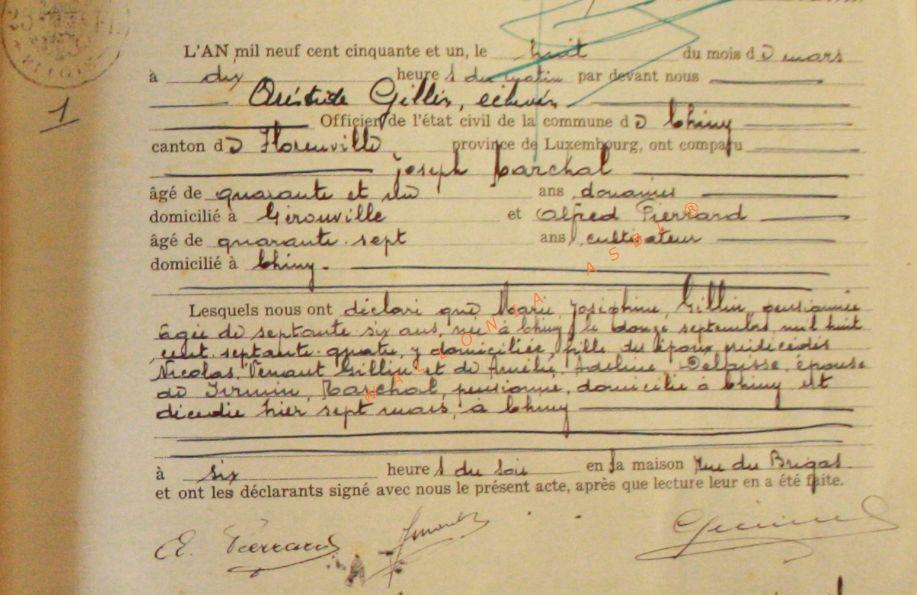 1
L'AN mil neuf cent cinquante et un, le huit du mois d e mars
à dix heure s du matin par devant nous
Gillin, échevin
Officier de l'état civil de la commune d e Chiny
canton d e Florenville, province de Luxembourg, ont comparu
Joseph Marchal
âgé de quarante et un ans douanier
domicilié à Gérouville et Alfred Pierrard
âgé de quarante-sept ans cultivateur
domicilié à Chiny.
Lesquels nous ont déclaré que Marie, Joséphine, Gillin, pensionnée
âgée de septante six ans, née à Chiny le douze septembre mil huit
cent septante quatre, y domiciliée, fille des époux prédécédés
Nicolas, Venant Gillin et de Amélie, Adeline Delaisse, épouse
de Firmin, Marchal, pensionné, domicilié à Chiny est
décédée hier sept mars, à Chiny
à six heure s du soir en sa maison Rue du Brigas
et ont les déclarants signé avec nous le présent acte, après que lecture leur en a été faite.
A. Pierrard
WALLONIA ASBL ®